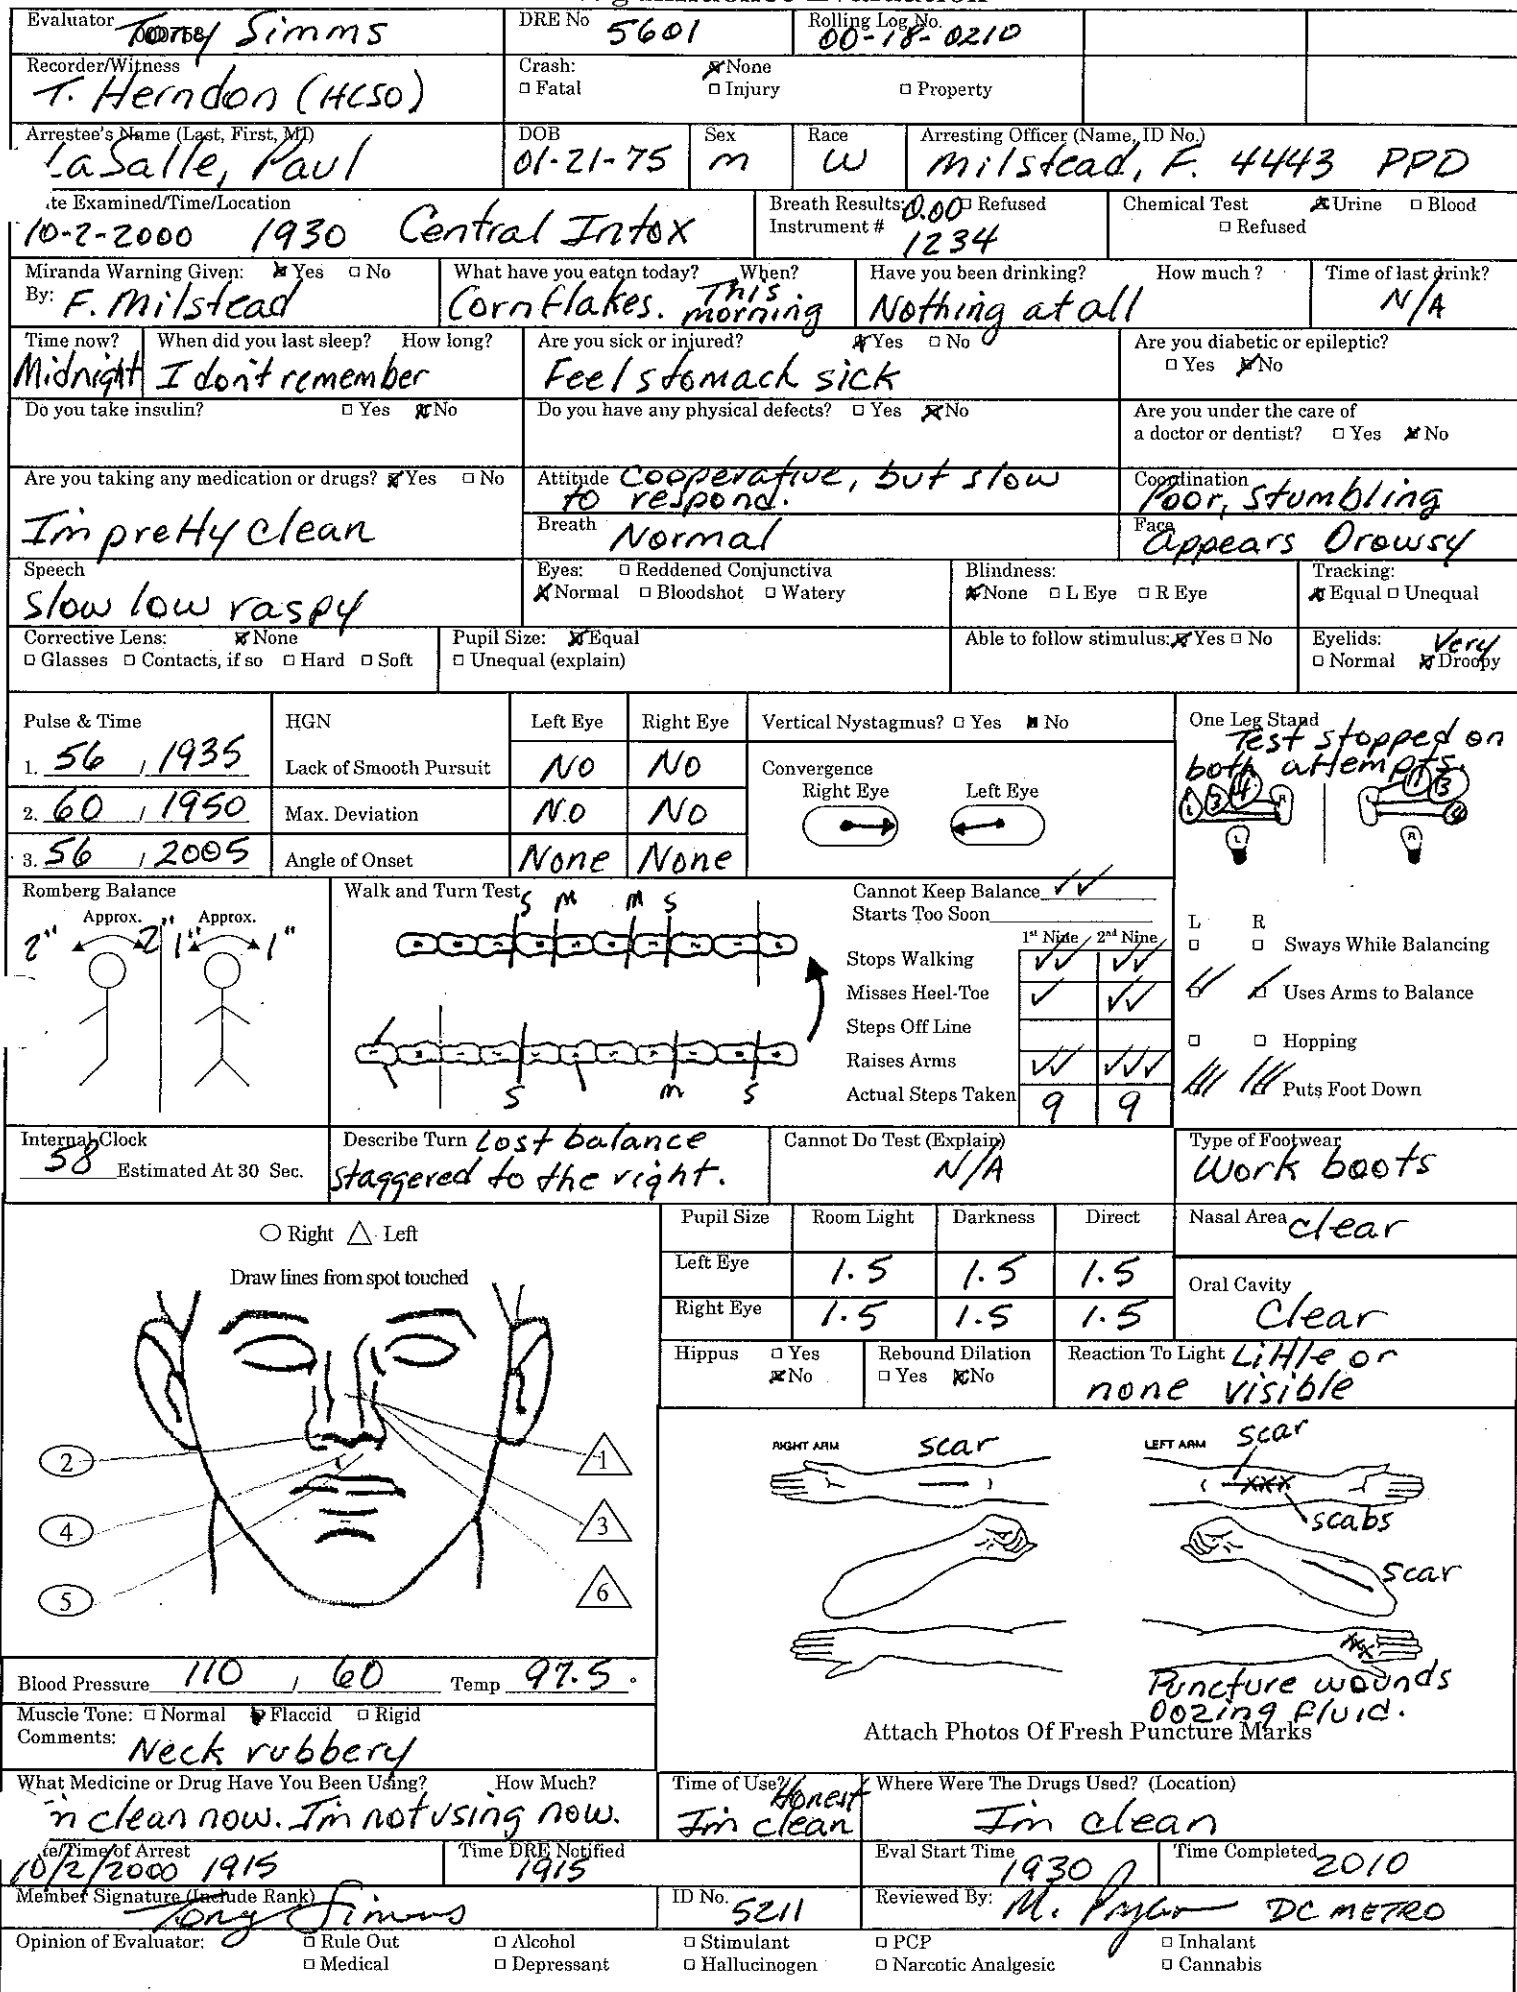 Evaluator Tony Simms
000768
DRE No 5601
Rolling Log No. 00-18-0210
Recorder/Witness T. Herndon (HCSO)
Crash: None
Fatal Injury Property
Arrestee's Name (Last, First, MI) LaSalle, Paul
DOB 01-21-75
Sex m
Race W
Arresting Officer (Name, ID No.) Milstead, F. 4443 PPD
te Examined/Time/Location 10-2-2000 1930 Central Intox
Breath Results: 0.00 Refused
Instrument # 1234
Chemical Test Urine Blood
Refused
Miranda Warning Given: Yes No
By: F. Milstead
What have you eaten today? When?
Cornflakes. This morning
Have you been drinking? How much ?
Nothing at all
Time of last drink?
N/A
Time now?
Midnight
When did you last sleep? How long?
I don't remember
Are you sick or injured? Yes No
Feel stomach sick
Are you diabetic or epileptic?
Yes No
Do you take insulin? Yes No
Do you have any physical defects? Yes No
Are you under the care of
a doctor or dentist? Yes No
Are you taking any medication or drugs? Yes No
I'm pretty clean
Attitude Cooperative, but slow
to respond.
Coordination
Poor, Stumbling
Breath Normal
Face
Appears Drowsy
Speech
Slow low raspy
Eyes: Reddened Conjunctiva
Normal Bloodshot Watery
Blindness:
None L Eye R Eye
Tracking:
Equal Unequal
Corrective Lens: None
Glasses Contacts, if so Hard Soft
Pupil Size: Equal
Unequal (explain)
Able to follow stimulus: Yes No
Eyelids: Very
Normal Droopy
Pulse & Time
1. 56 / 1935
2. 60 / 1950
3. 56 / 2005
HGN Left Eye Right Eye
Lack of Smooth Pursuit No No
Max. Deviation No No
Angle of Onset None None
Vertical Nystagmus? Yes No
Convergence
Right Eye Left Eye
One Leg Stand
Test stopped on
both attempts.
L R
Sways While Balancing
Uses Arms to Balance
Hopping
Puts Foot Down
Romberg Balance
Approx. Approx.
2" 2" 1" 1"
Walk and Turn Test
S M M S
S M S
Cannot Keep Balance
Starts Too Soon
1st Nine 2nd Nine
Stops Walking
Misses Heel-Toe
Steps Off Line
Raises Arms
Actual Steps Taken 9 9
Internal Clock
58 Estimated At 30 Sec.
Describe Turn Lost balance
staggered to the right.
Cannot Do Test (Explain)
N/A
Type of Footwear
Work boots
Right Left
Draw lines from spot touched
2 1
4 3
5 6
Pupil Size Room Light Darkness Direct
Left Eye 1.5 1.5 1.5
Right Eye 1.5 1.5 1.5
Nasal Area clear
Oral Cavity
Clear
Hippus Yes
No
Rebound Dilation
Yes No
Reaction To Light Little or
none visible
RIGHT ARM scar
LEFT ARM scar
scabs
scar
Puncture wounds
oozing fluid.
Attach Photos Of Fresh Puncture Marks
Blood Pressure 110 / 60 Temp 97.5 °
Muscle Tone: Normal Flaccid Rigid
Comments: Neck rubbery
What Medicine or Drug Have You Been Using? How Much?
m clean now. I'm not using now.
Time of Use? Honest
I'm clean
Where Were The Drugs Used? (Location)
I'm clean
te/Time of Arrest
10/2/2000 1915
Time DRE Notified
1915
Eval Start Time
1930
Time Completed
2010
Member Signature (Include Rank)
Tony Simms
ID No.
5211
Reviewed By: M. DC METRO
Opinion of Evaluator: Rule Out Alcohol Stimulant PCP Inhalant
Medical Depressant Hallucinogen Narcotic Analgesic Cannabis